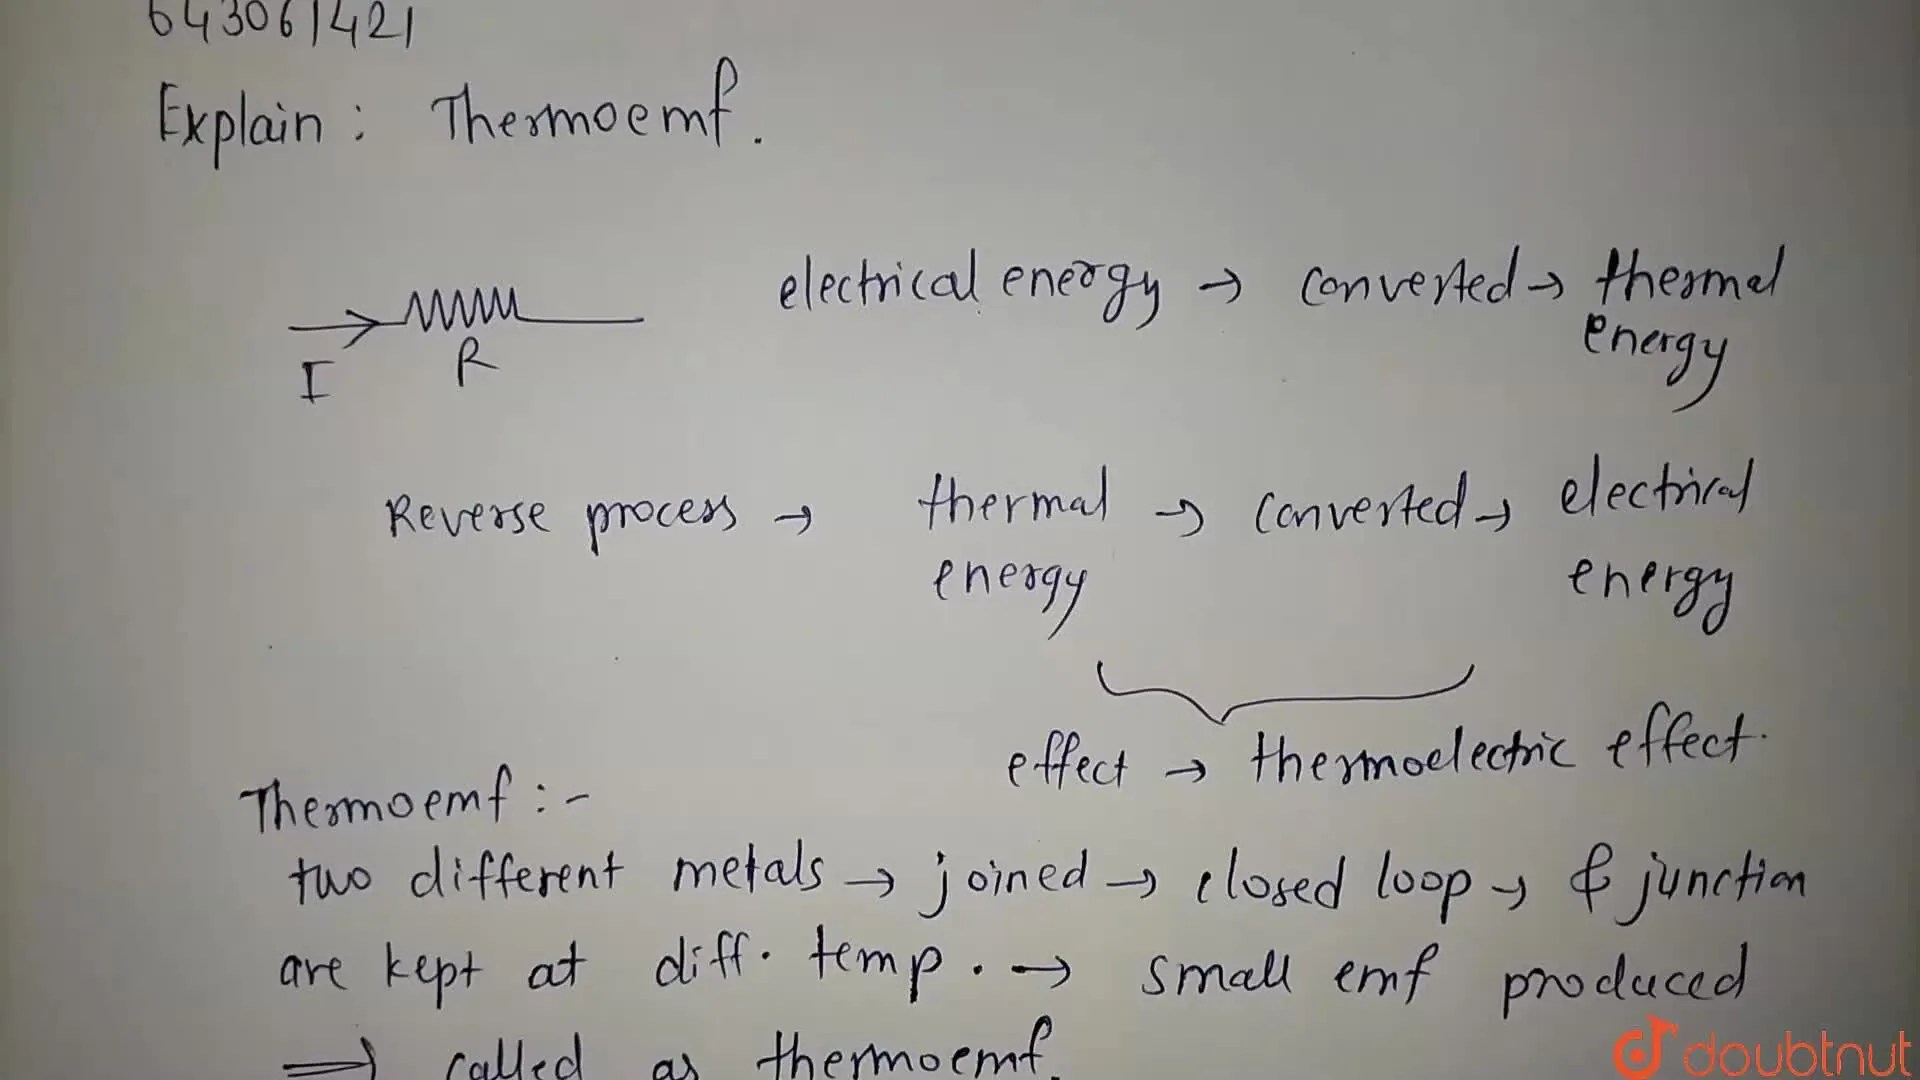 643061421
Explain : Thermoemf.
electrical energy → converted → thermal
energy
I R
Reverse process → thermal → converted → electrical
energy energy
effect → thermoelectric effect.
Thermoemf :-
two different metals → joined → closed loop → & junction
are kept at diff. temp. → small emf produced
⇒ called as thermoemf.
doubtnut